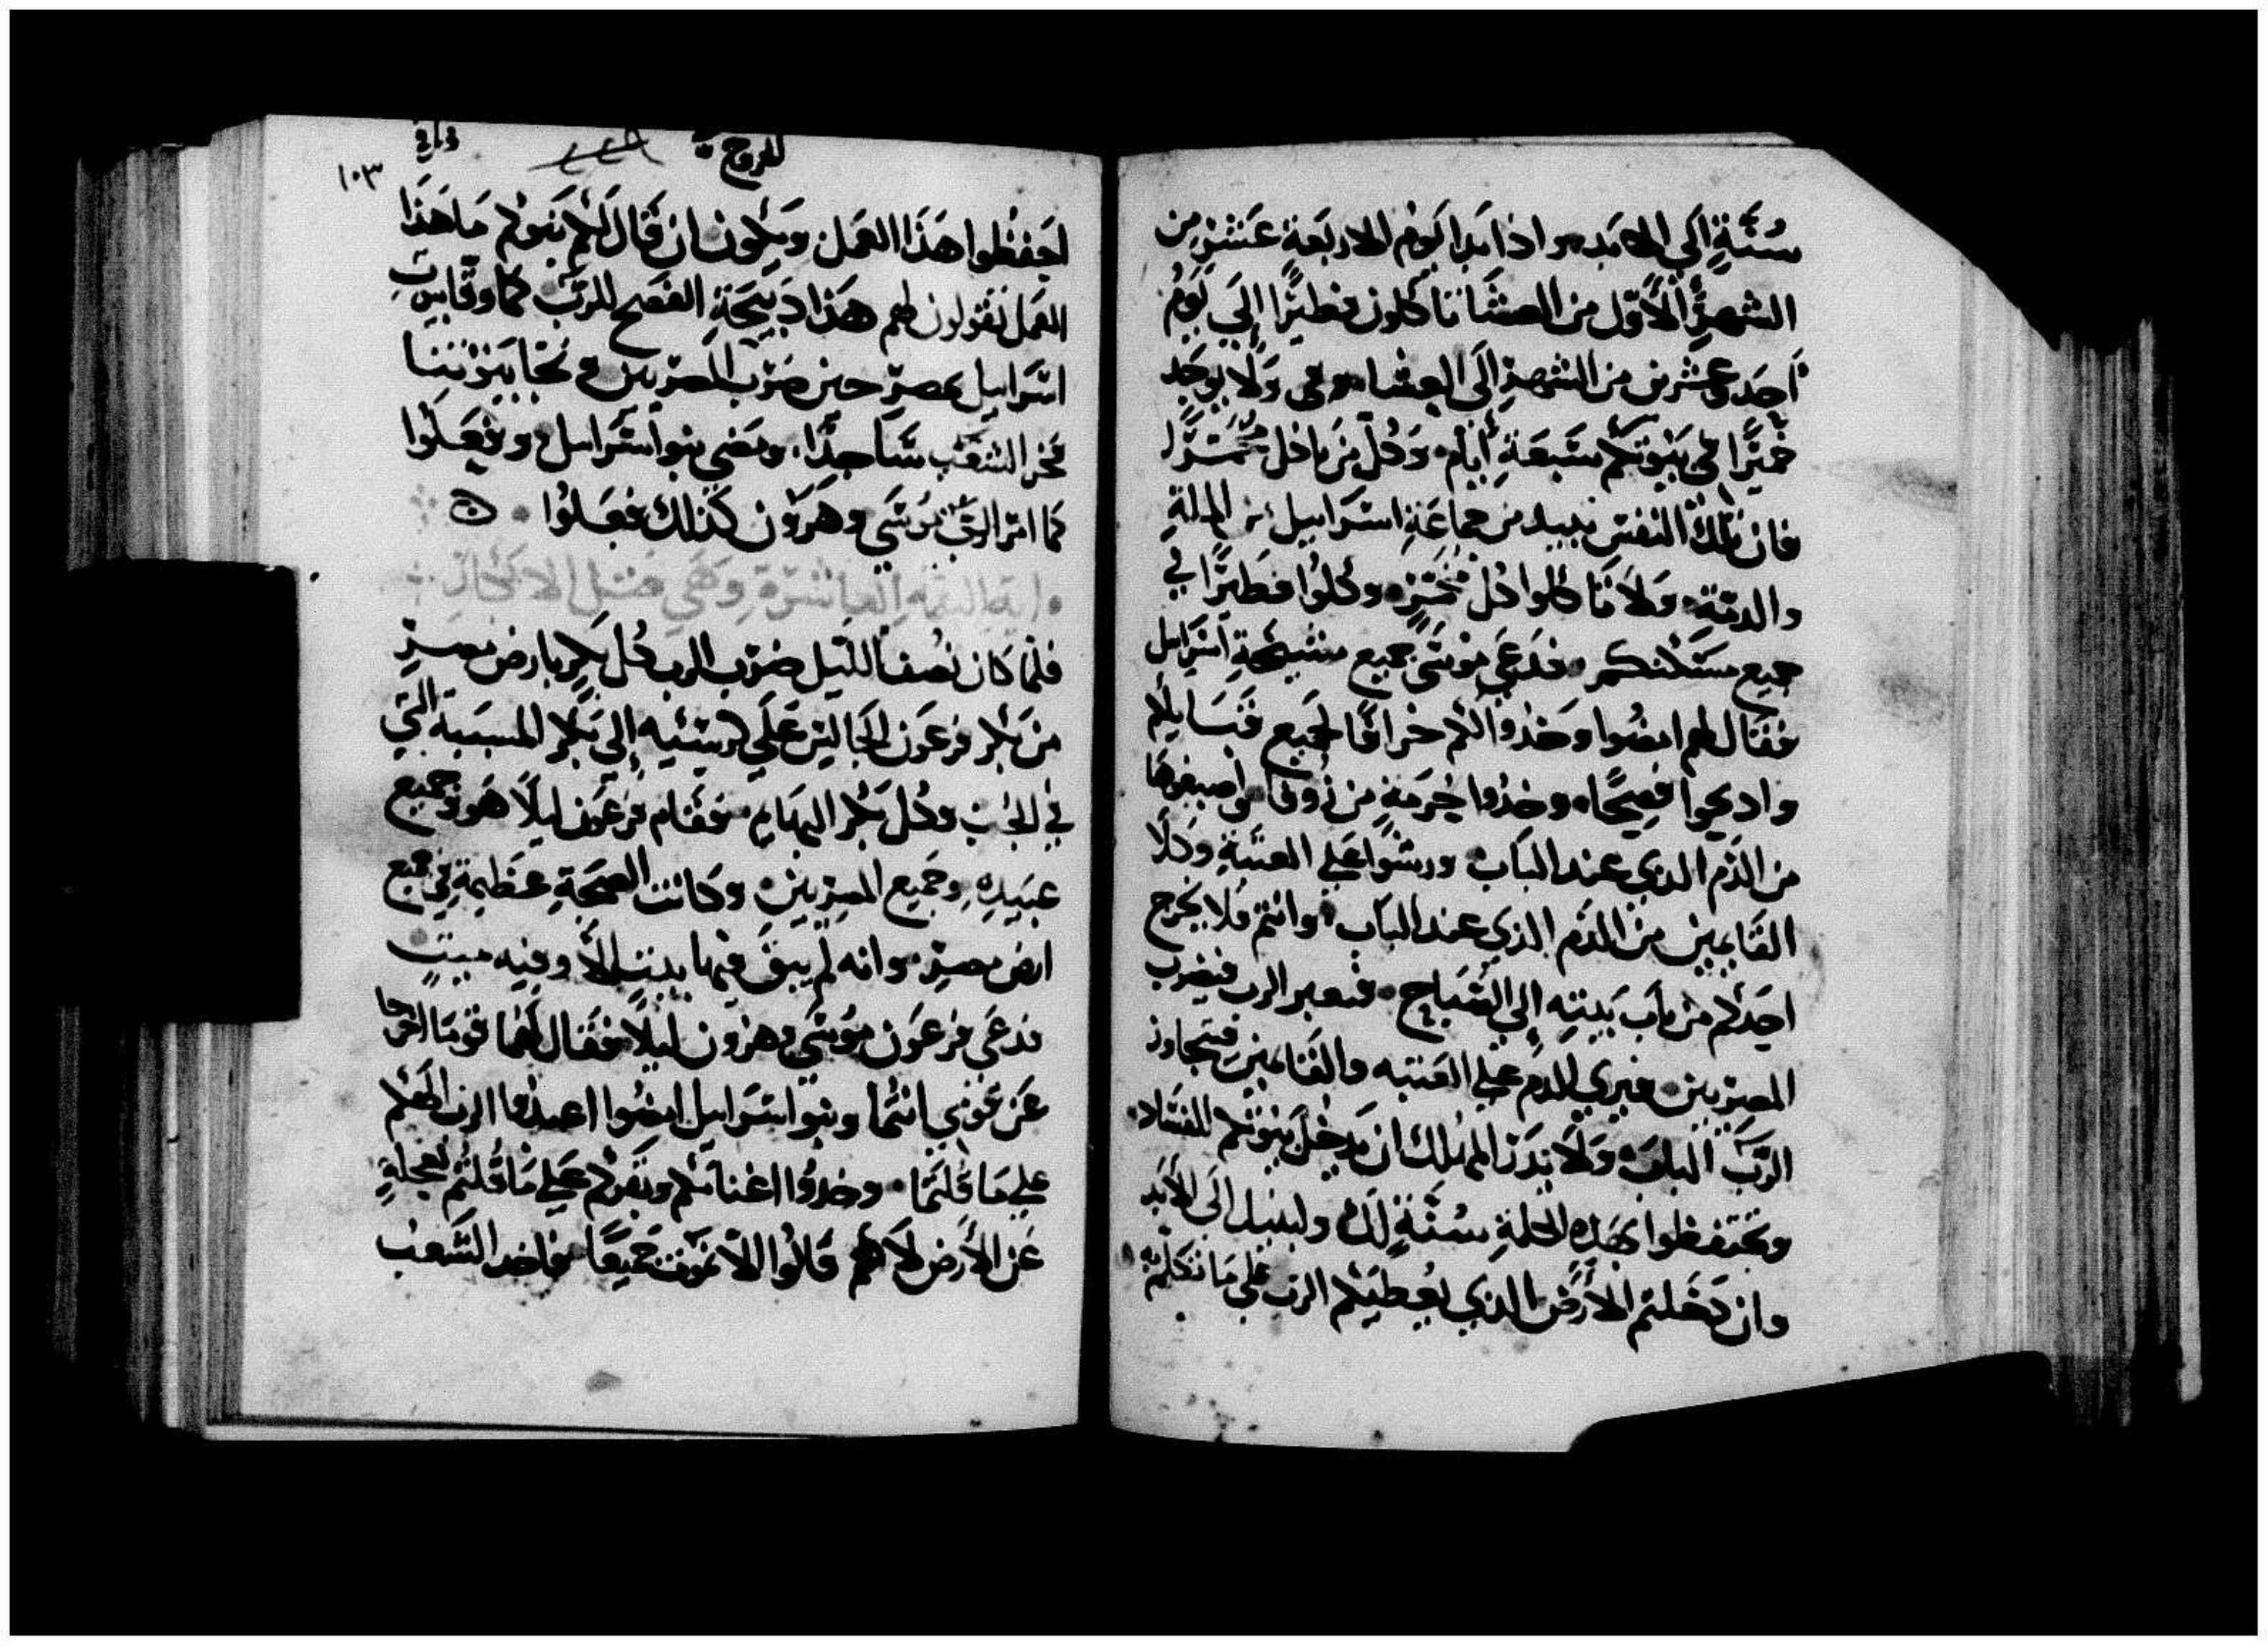 سُنَّةٍ اِلَي الابد. واذا بدا اليَومُ الاربَعة عَشرِ من
الشهرِ الاوّل من العشَا تاكلون فطيرًا اِلَي يَومُ
اَحَد وعشرين من الشهرِ اِلَي العشا ولا يوجَد
خميرًا في بيوتكم سَبعَةِ أيام. وكُلّ من ياكل مختمرًا
فان تلك النفسَ تبيد من جماعَةِ اسرَاييل من الملةِ
والدمة. ولا تاكلوا كل مختمرٍ. وكلوا فطيرًا في
جميع مسَكنكم. فدَعَى موسَى جميع مشيخةِ اسرَاييل
فقال لهم امضوا وَخذوا لكم خرافًا لجميع قبَايلكم
وادبحوا فصحًا. وخذوا حُزمَةٍ من زوفا واصبغوها
من الدَم الدي عند البَاب ورشوا علي العتبةِ وكلا
القايمين من الدَم الذي عند البَاب. وانتم فلا يخرج
احدكم من باب بيته اِلي الصَباح. فيعبر الرب فيضرب
المصريين. فيري الدم علي العتبه والقايمين فيتجاوز
الرَب الباب. وَلا يدَع المهلك ان يدخل بيوتكم للفساد.
وتحتفظوا بهده الحلةِ سُنَّةٍ لك ولبنيك اِلَى الابد
وان دَخلتم الارض الدي يُعطيكم الرب علي ما تكلم به
الخروج
١٠٣
احفظوا هَذَا العمَل. ويكون ان قَالَ لكم بَنوكم مَا هَذا
العمَل تقولون لهم هَذا دبيحَةِ الفصح للرَبّ كما وقا بيوت
اسرَاييل بمصر حين ضرَب المصريين ونجا بيوتنا
فخر الشعب سَاجدًا. ومضي بنوا اسرَاييل وفعَلوا
كما امر الرب موسَي وهَرَون كذلك فعَلوُا.
اية النقمه العاشرَة وهَي قتل الابكار
فلما كان نُصف الليَل ضرَب الرب كُل بكرٍ بارض مصرٍ
من بكر فرعَون الجالس عَلَي كرسَيه اِلي بكر المسبية التي
في الجب وكُل بكر البهايم. فقام فرعَون ليلاً هَو وجميع
عبيَدهِ وجَميع المصريين. وكانت الصيحَةِ عظيمَةٍ في جميع
ارض مصرٍ. وانه لم يبقَ فيها بيتٍ اِلاَّ وفيه ميتٍ
فدعَى فرعَون موسَي وهرون ليلاً فقال لهما قومَا اخرجا
عَن قومي انتما وبنوا اسرَاييل امضوا اعبدُوا الرب الهكم
علي مَا قلتما. وخدُوا اغنامكم وبقركم عَلي مَا قُلتم بعجلةٍ
عَن الارض لاَنهم قَالوُا اِلاَّ نموت جَميعًا. فاخد الشَعب